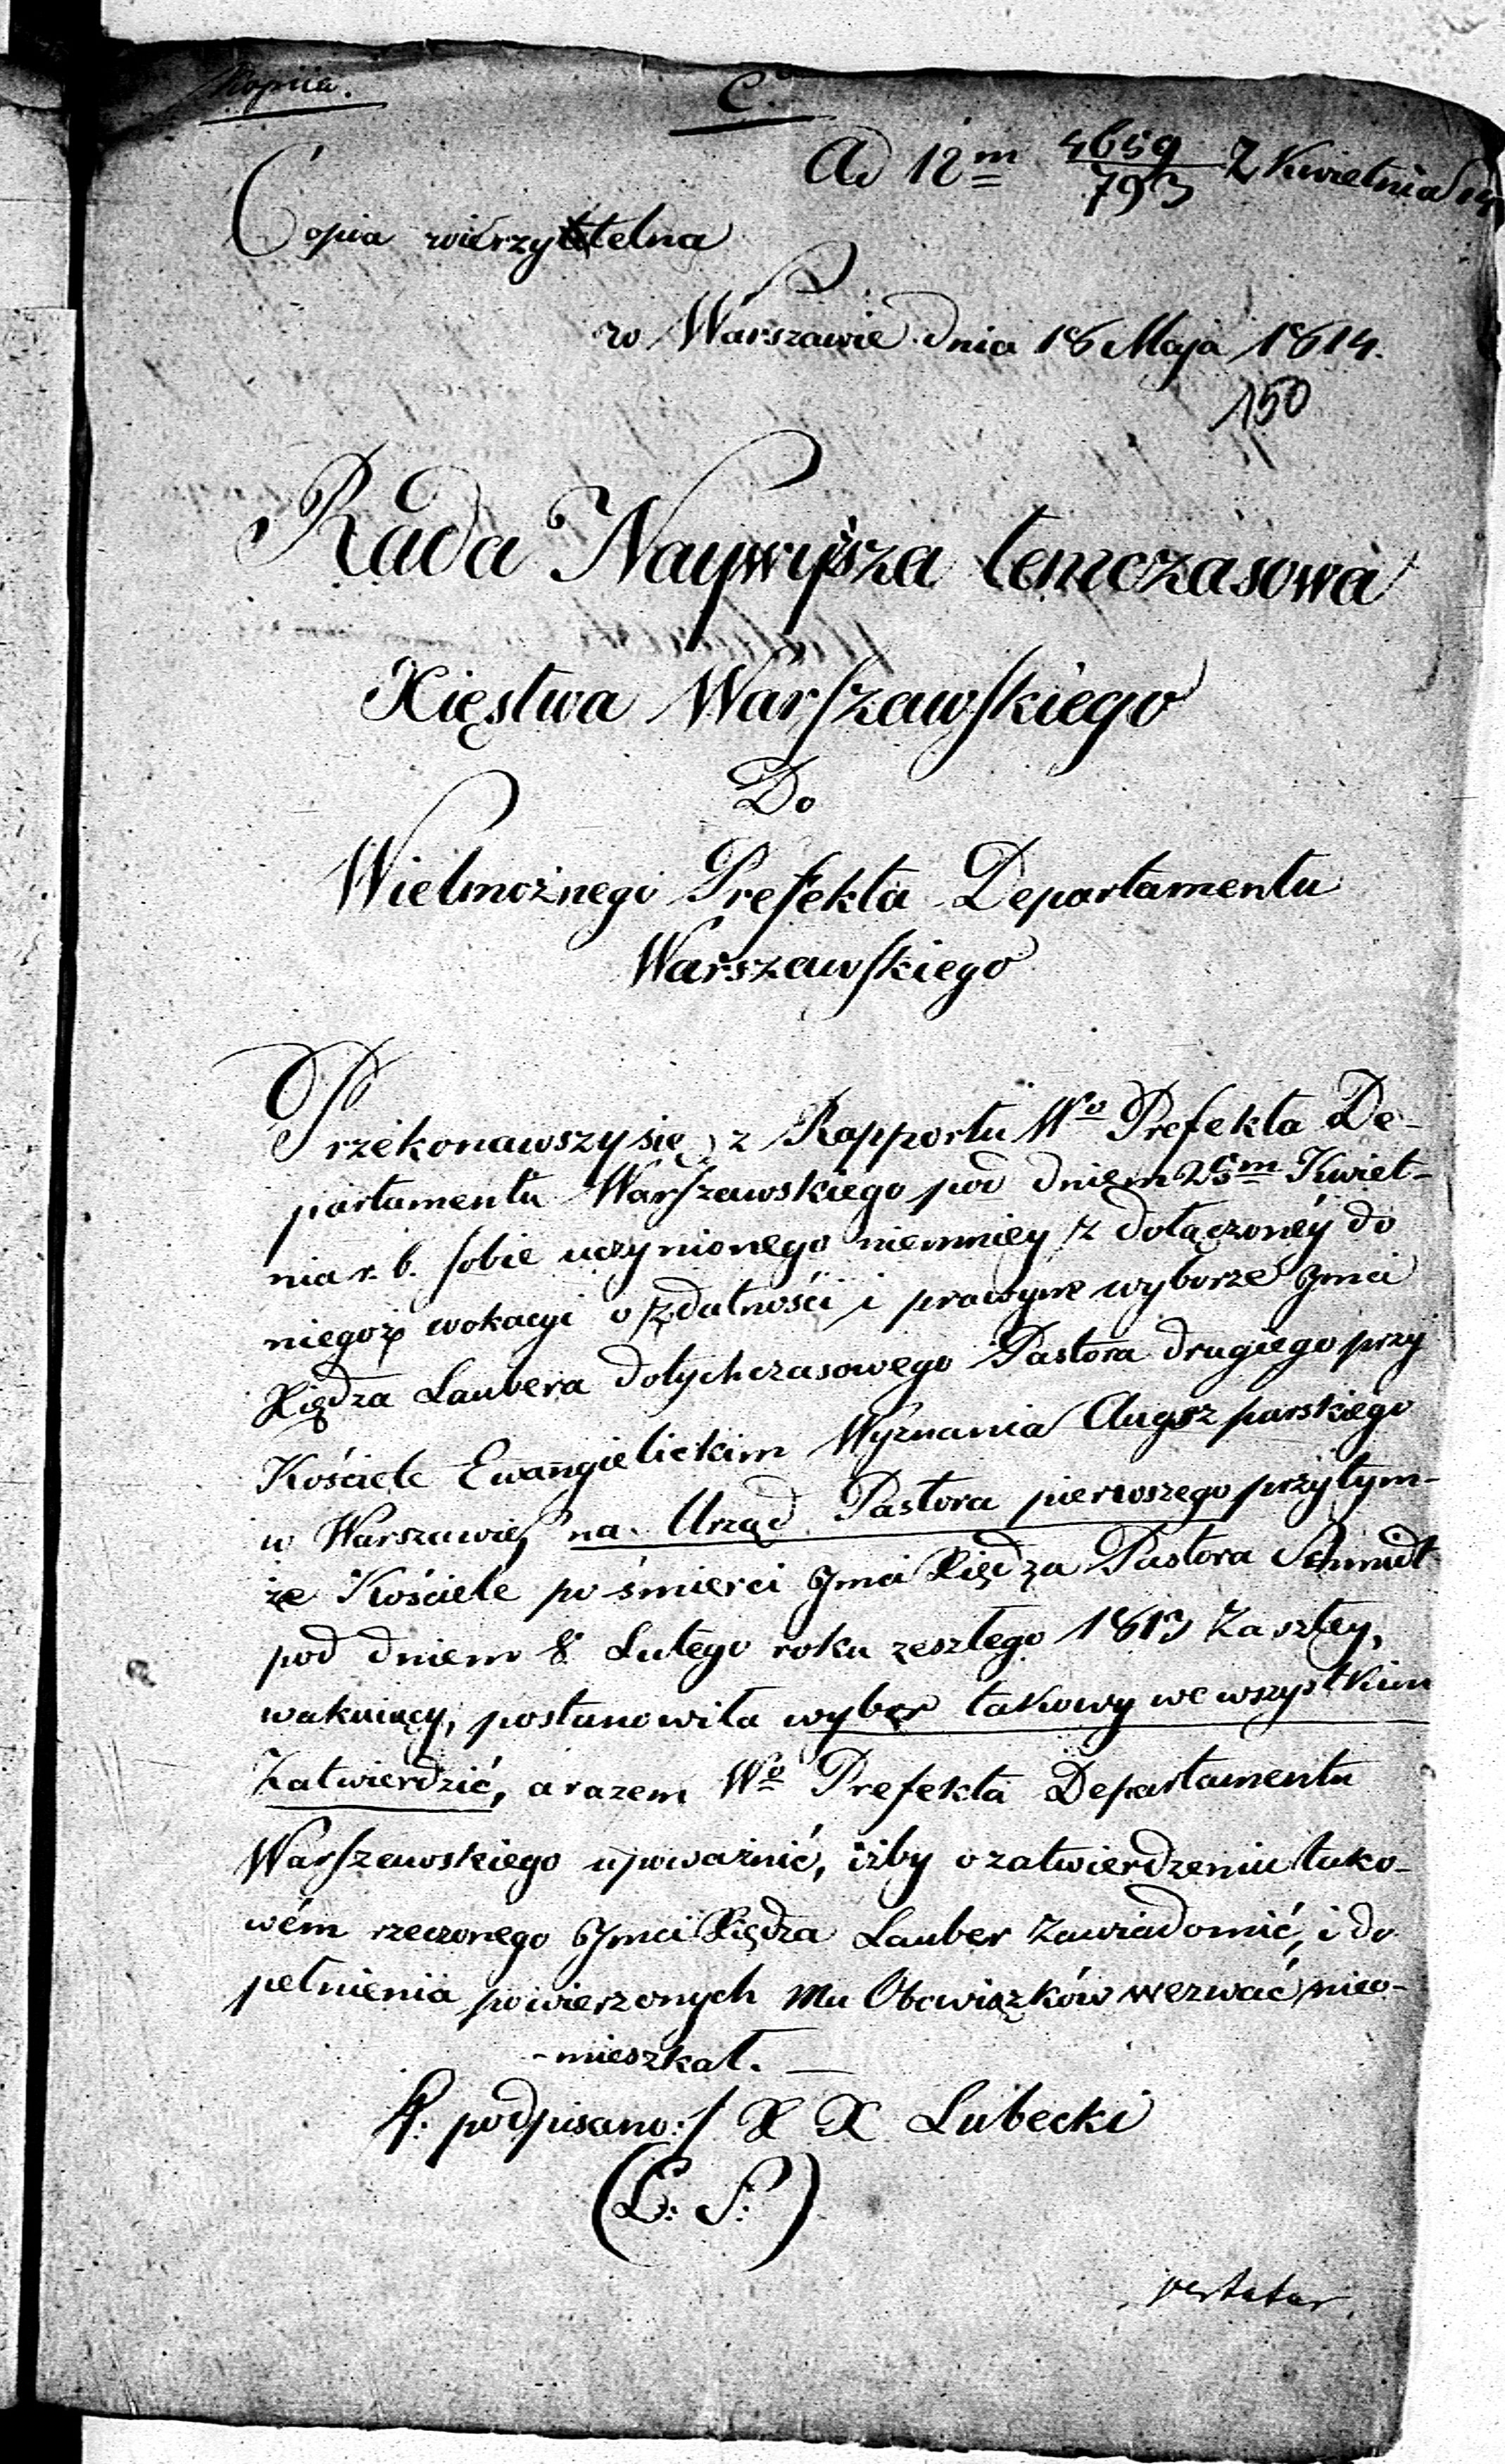 Kopiia.
C.
Ad 12m 4659/793 Z Kwietnia 14
Copia wierzytelna
w Warszawie dnia 18 Maja 1814.
150
Rada Naywyższa temczasowa
Xięstwa Warszawskiego
Do
Wielmożnego Prefekta Departamentu
Warszawskiego
Przekonawszy się, z Rapportu Wo Prefekta De-
partamentu Warszawskiego pod dniem 25m Kwiet-
nia r. b. sobie uczynionego niemniey z dołączoney do
niegoż wokacyi o zdatności i prawym wyborze Jmci
Xiędza Laubera dotychczasowego Pastora drugiego przy
Kościele Ewangielickim Wyznania Augszpurskiego
w Warszawie, na Urząd Pastora pierwszego przytym-
że Kościele po śmierci Jmci Xiędza Pastora Schmidt
pod dniem 8 Lutego roku zeszłego 1813 Zaszłey,
wakuiący, postanowiła wybor takowy we wszystkim
Zatwierdzić, a razem Wo Prefekta Departamentu
Warszawskiego upoważnić, iżby o zatwierdzeniu tako-
wém rzeczonego Jmci Xiędza Lauber Zawiadomić, i do
pełnienia powierzonych mu Obowiązków wezwać nieo-
-mieszkał.
/: podpisano :/ X X Lubecki
(L: S:)
vertatur